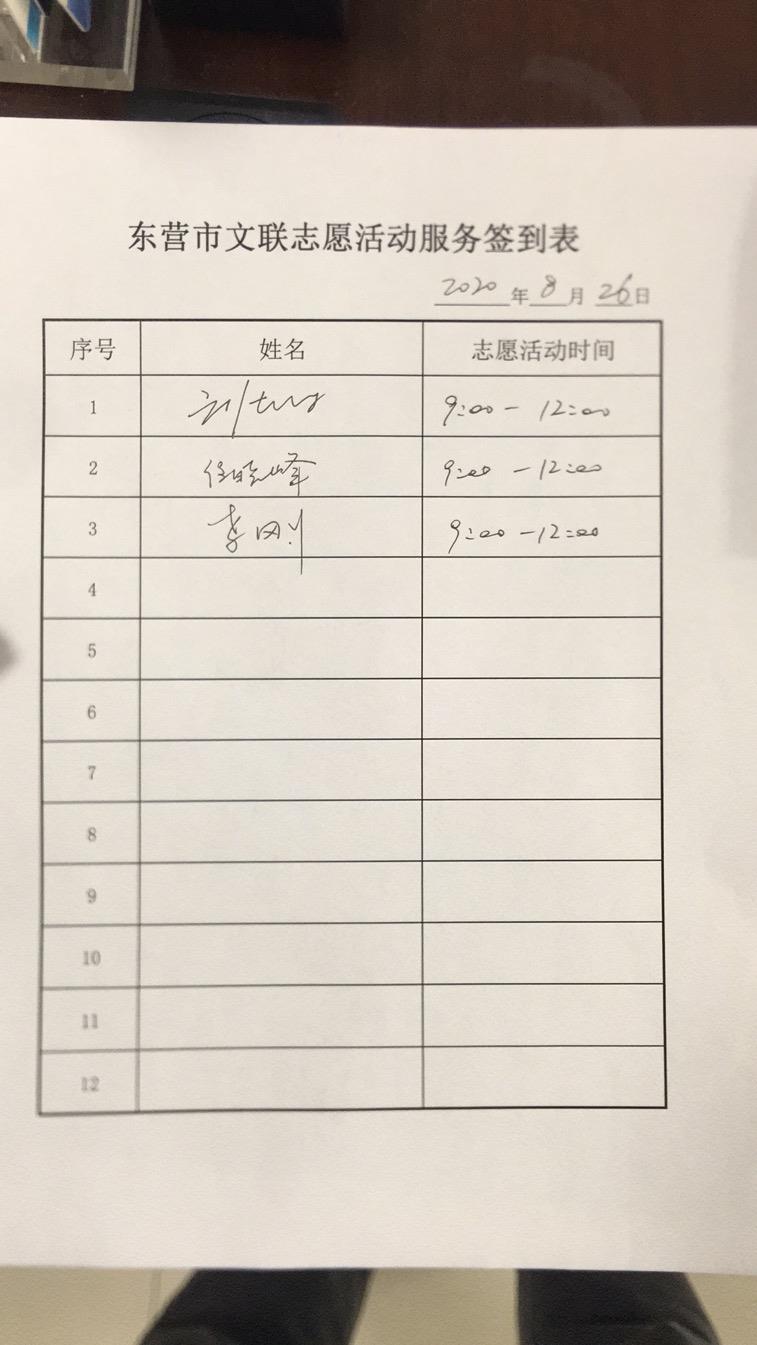 东营市文联志愿活动服务签到表
2020年8月26日
序号 姓名 志愿活动时间
1 刘 9:00-12:00
2 任晓峰 9:00-12:00
3 李刚 9:00-12:00
4
5
6
7
8
9
10
11
12